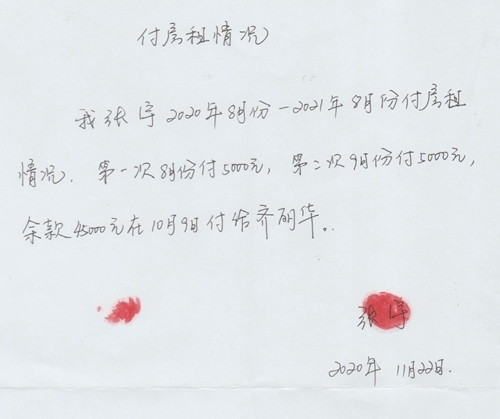 付房租情况
我张宇2020年8月份-2021年8月份付房租
情况. 第一次8月份付5000元, 第二次9月份付5000元,
余款45000元在10月9日付给齐明华。
张宇
2020年 11月22日.